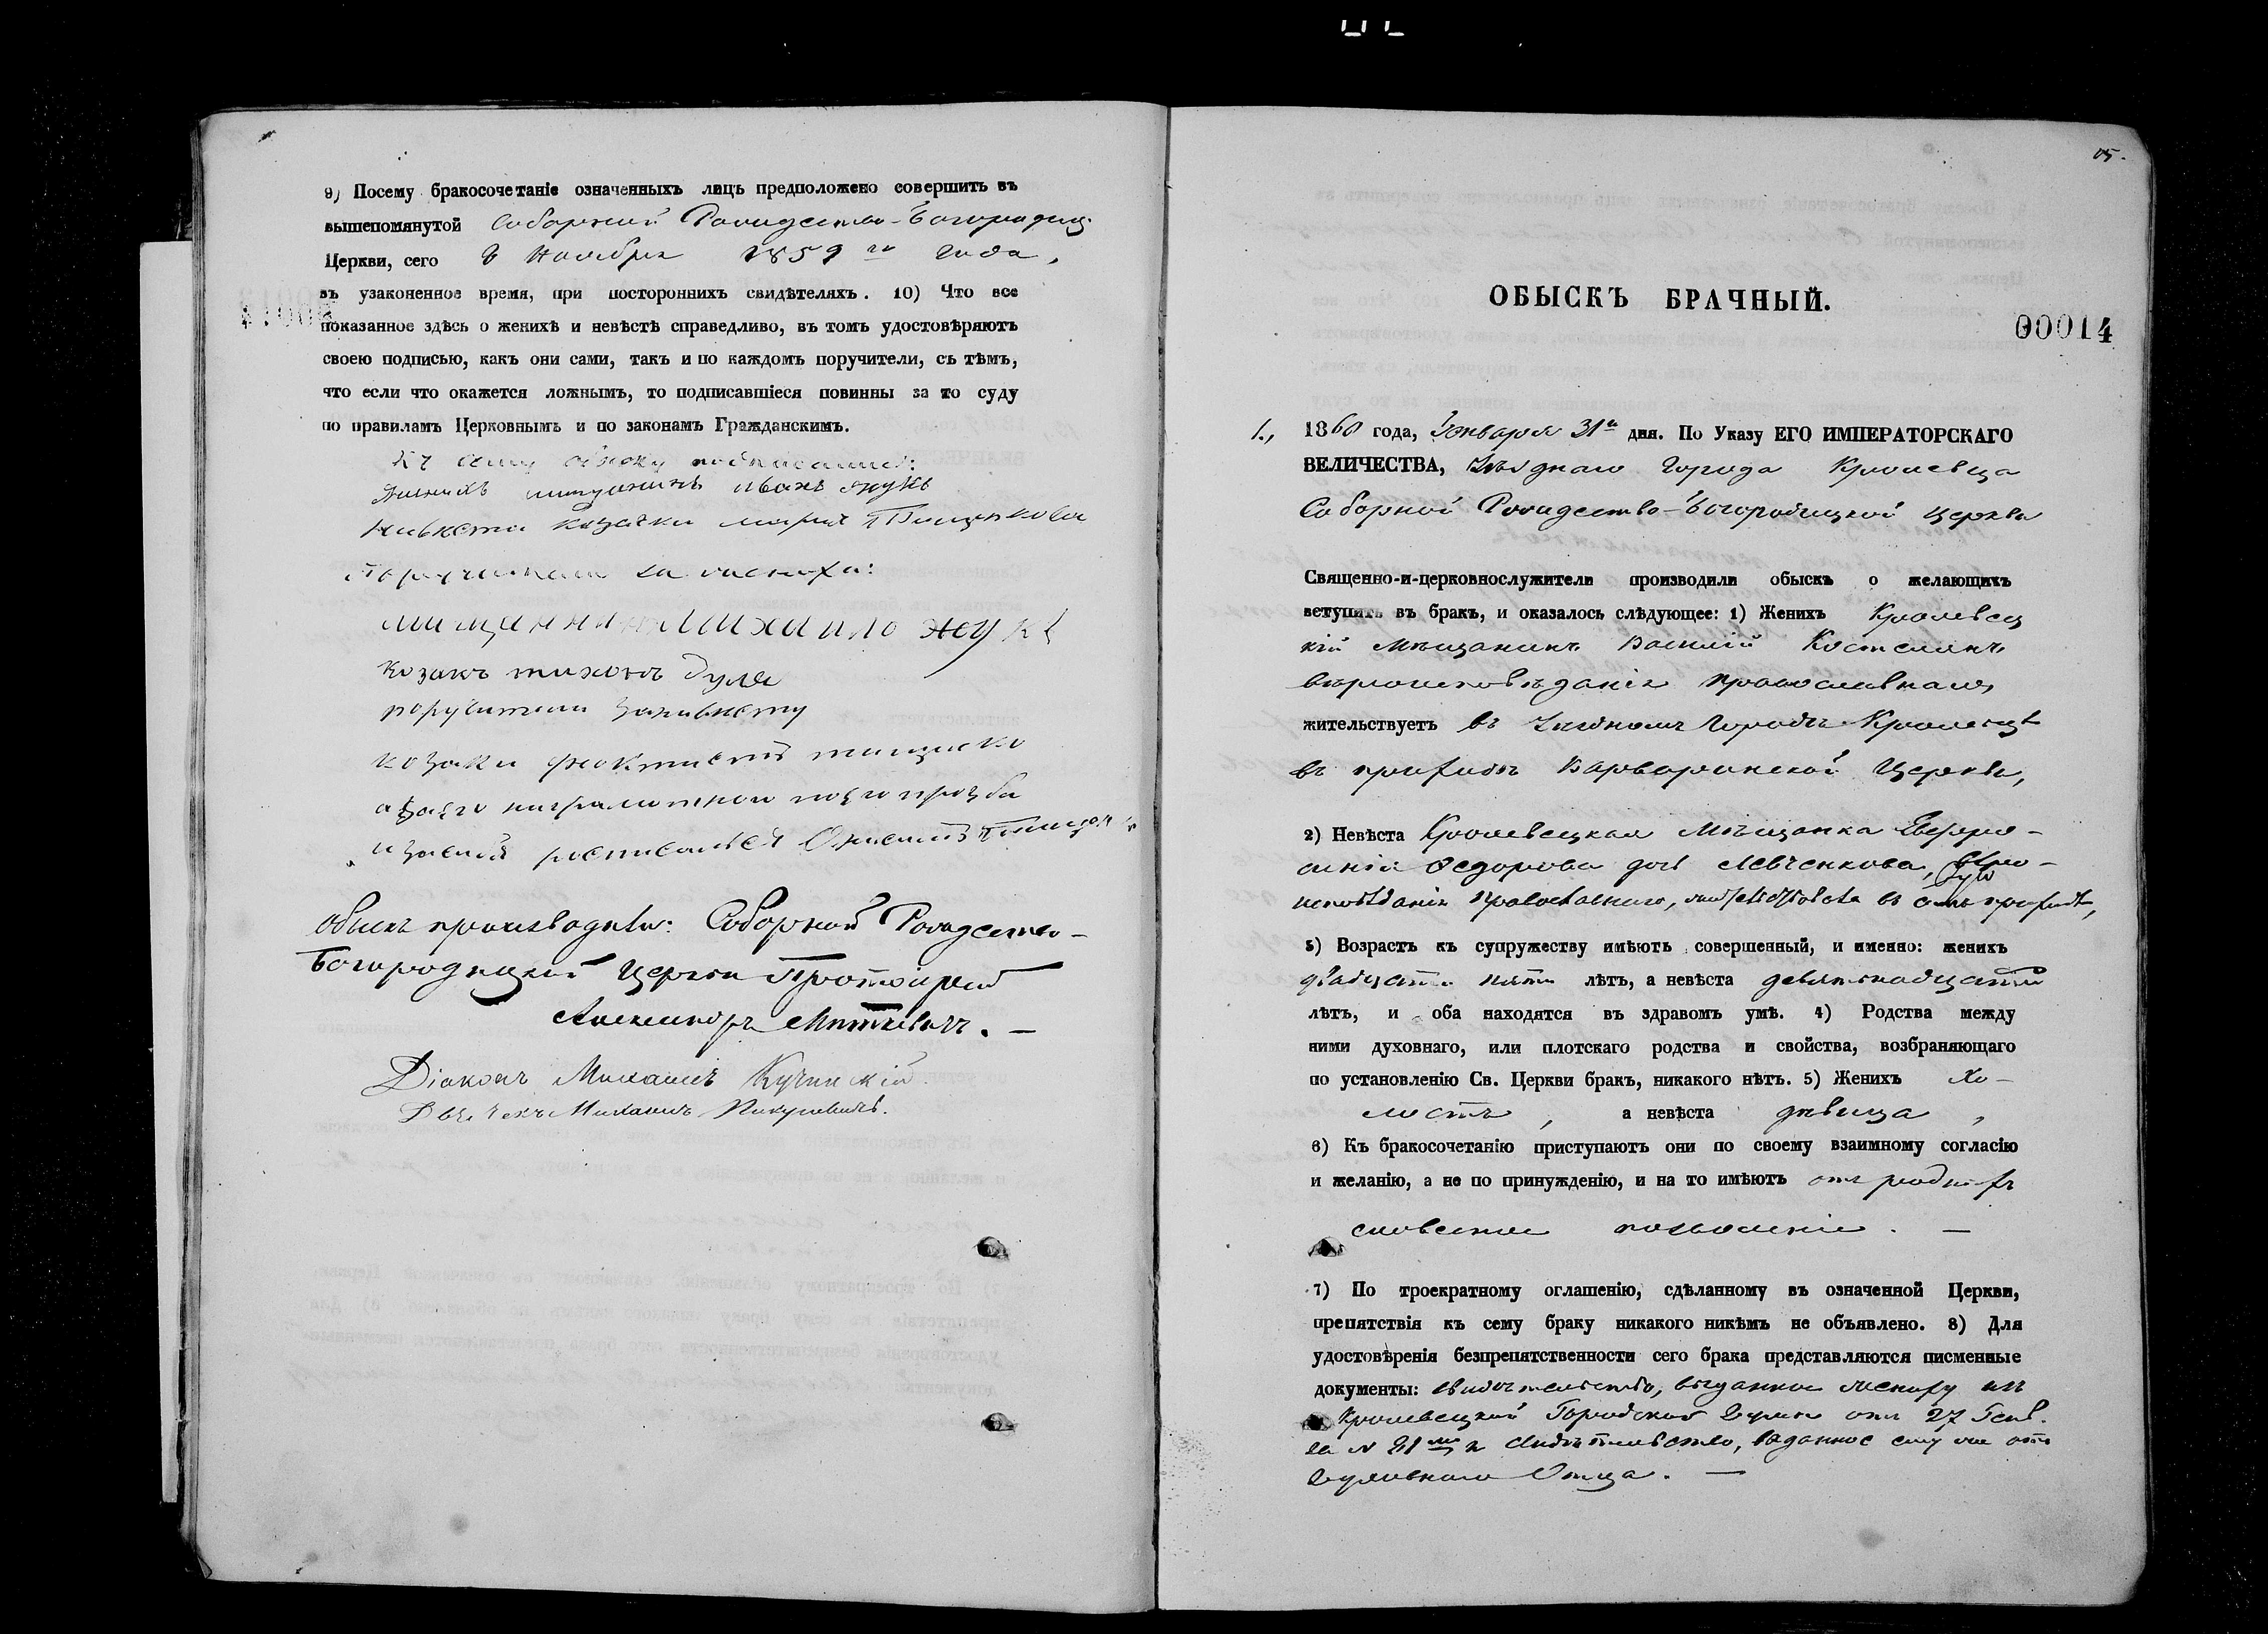 9) Посему бракосочетаніе означенныхъ лицъ предположено совершить въ
вышепомянутой Соборной Рождество-Богородиц.
Церкви, сего 8 Ноября 1859 го года,
въ узаконенное время, при постороннихъ свидѣтеляхъ. 10) Что все
показанное здѣсь о женихѣ и невѣстѣ справедливо, въ томъ удостовѣряютъ
своею подписью, какъ они сами, такъ и по каждомъ поручители, съ тѣмъ,
что если что окажется ложнымъ, то подписавшіеся повинны за то суду
по правиламъ Церковнымъ и по законамъ Гражданскимъ.
Къ сему обыску подписались:
Женихъ мищанинъ иванъ жукъ
Невѣста козачка марія Тищенкова
Поручители за жениха:
мищанинъ Михаило жукъ
козакъ тихонъ Дуля
поручители
козакъ тищенко
Обыскъ производили: Соборной Рождество-
Богородицкой Церкви Протоіерей
Александръ Миткевичъ. —
Діаконъ Михаилъ Кучинскій.
Михаилъ
05.
ОБЫСКЪ БРАЧНЫЙ.
00014
1., 1860 года, Января 31го дня. По Указу ЕГО ИМПЕРАТОРСКАГО
ВЕЛИЧЕСТВА, Уѣзднаго Города Кролевца
Соборной Рождество-Богородицкой Церкви
Священно-и-церковнослужители производили обыскъ о желающихъ
вступить въ бракъ, и оказалось слѣдующее: 1) Женихъ Кролевец
кій Мѣщанинъ Василій Костелинъ
вѣроисповѣданія православнаго
жительствуетъ въ Уѣздномъ Городѣ Кролевцѣ
въ приходѣ Варваринской Церкви,
2) Невѣста Кролевецкая Мѣщанка Евфро-
синія Ѳедорова дочь Левченкова, вѣро-
исповѣданія Православнаго, жительствовала въ семъ приходѣ,
3) Возрастъ къ супружеству имѣютъ совершенный, и именно: женихъ
двадцати пяти лѣтъ, а невѣста девятнадцати
лѣтъ, и оба находятся въ здравомъ умѣ. 4) Родства между
ними духовнаго, или плотскаго родства и свойства, возбраняющаго
по установленію Св. Церкви бракъ, никакого нѣтъ. 5) Женихъ хо-
лостъ, а невѣста дѣвица,
6) Къ бракосочетанію приступаютъ они по своему взаимному согласію
и желанію, а не по принужденію, и на то имѣютъ отъ родныхъ
словесное позволеніе. —
7) По троекратному оглашенію, сдѣланному въ означенной Церкви,
препятствія къ сему браку никакого никѣмъ не объявлено. 8) Для
удостовѣренія безпрепятственности сего брака представляются писменные
документы: свидѣтельство, выданное жениху изъ
Кролевецкой Городской Думы отъ 27 Генв.
за N 81 и свидѣтельство, выданное ему же отъ
Духовнаго Отца. —